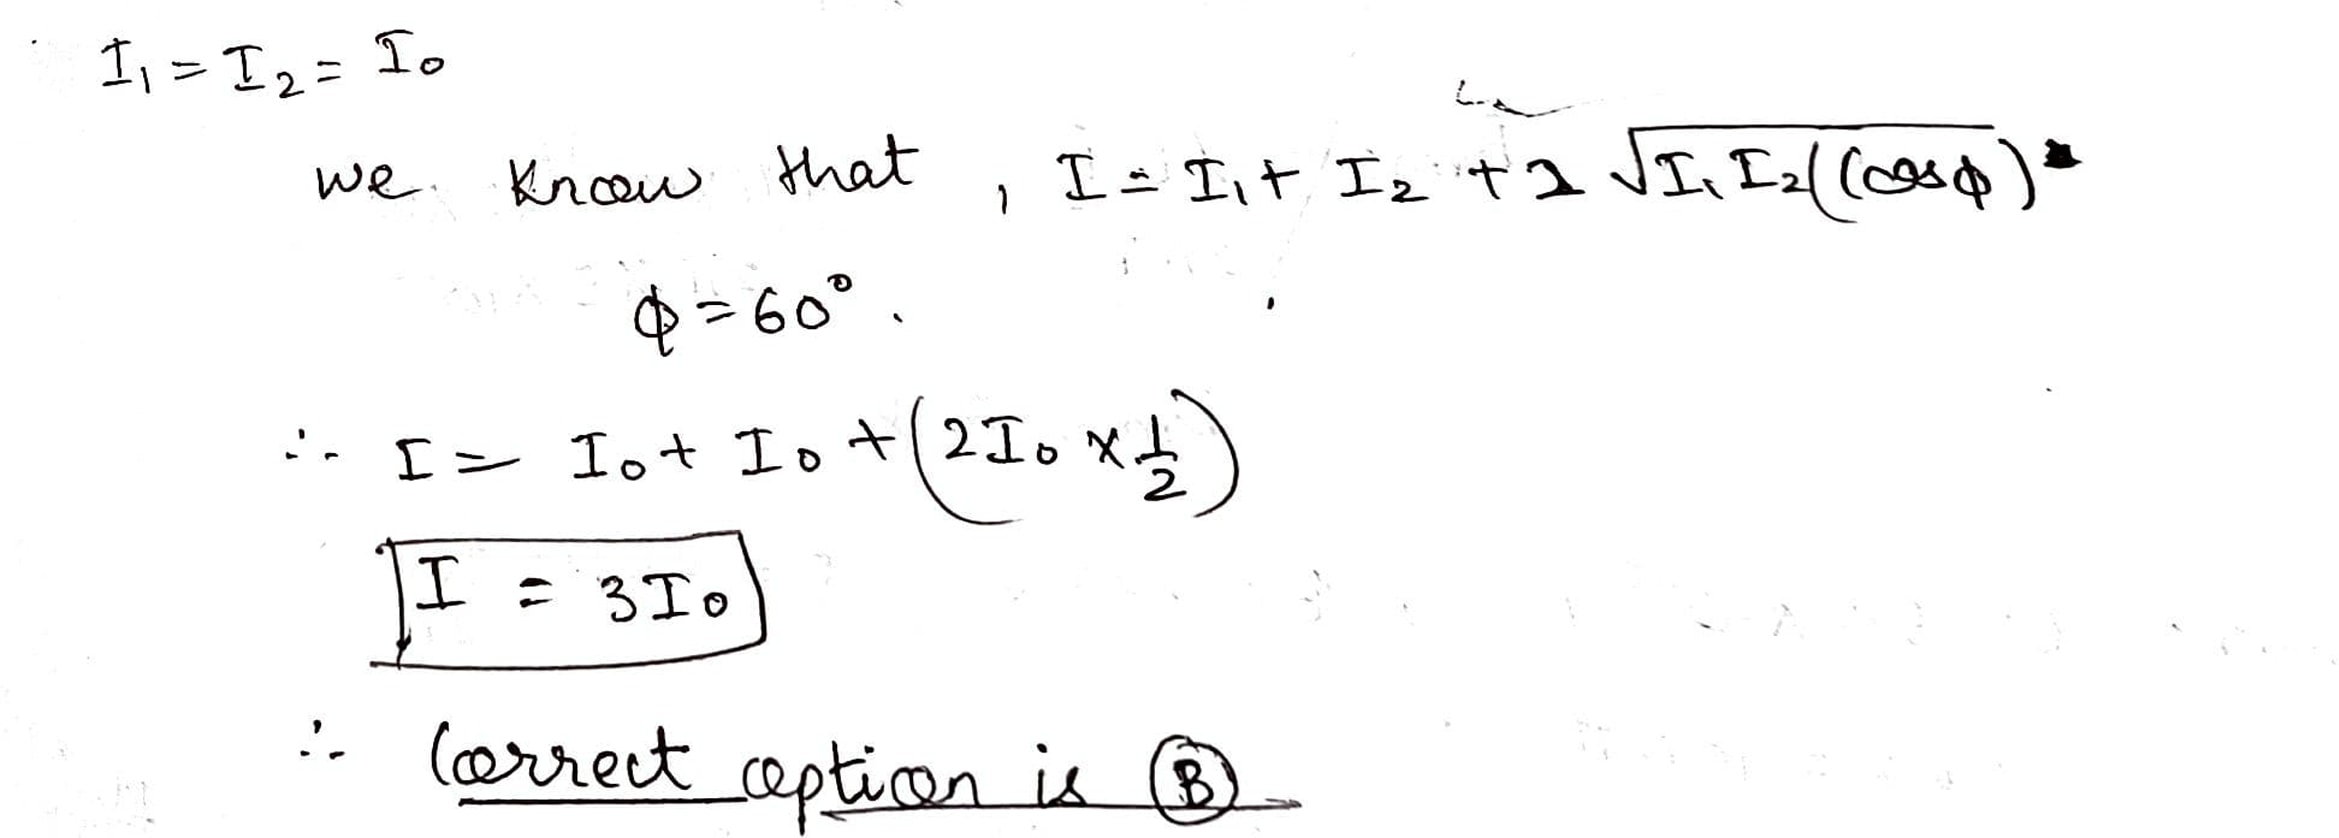 I₁ = I₂ = I₀
we know that , I = I₁ + I₂ + 2 √I₁ I₂ (cosϕ)
ϕ = 60° .
∴ I = I₀ + I₀ + (2I₀ × 1/2)
I = 3I₀
∴ Correct option is Ⓑ